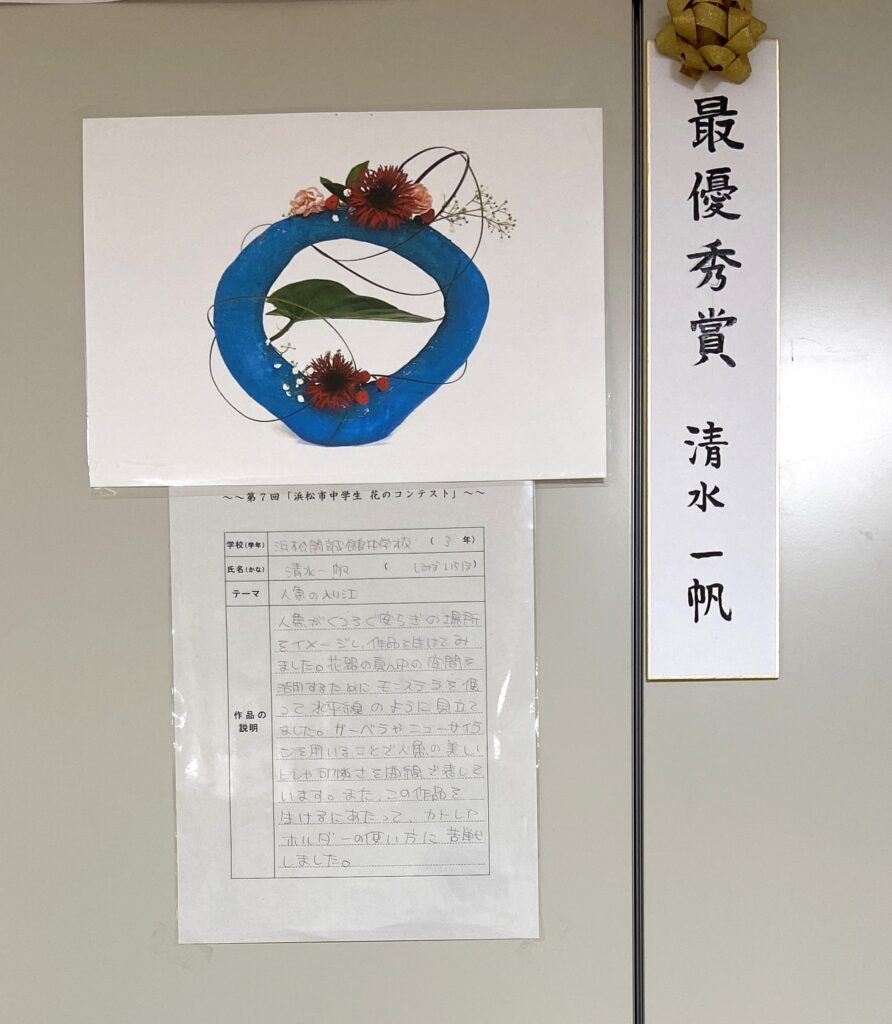 最優秀賞 清水 一帆
~~第7回「浜松市中学生 花のコンテスト」~~
学校(学年) 浜松開誠館中学校 ( 3 年)
氏名(かな) 清水一帆 ( しみず いちほ)
テーマ 人魚の入り江
作品の説明
人魚がくつろぐ安らぎの場所
をイメージし、作品を生けてみ
ました。花器の真ん中の空間を
活用するために モンステラを使
って 水平線 のように見立て
ました。ガーベラやニューサイラ
ンを用いることで人魚の美し
さを曲線で表して
います。また、この作品を
生けるにあたって、カトレア
ホルダーの使い方に 苦戦
しました。